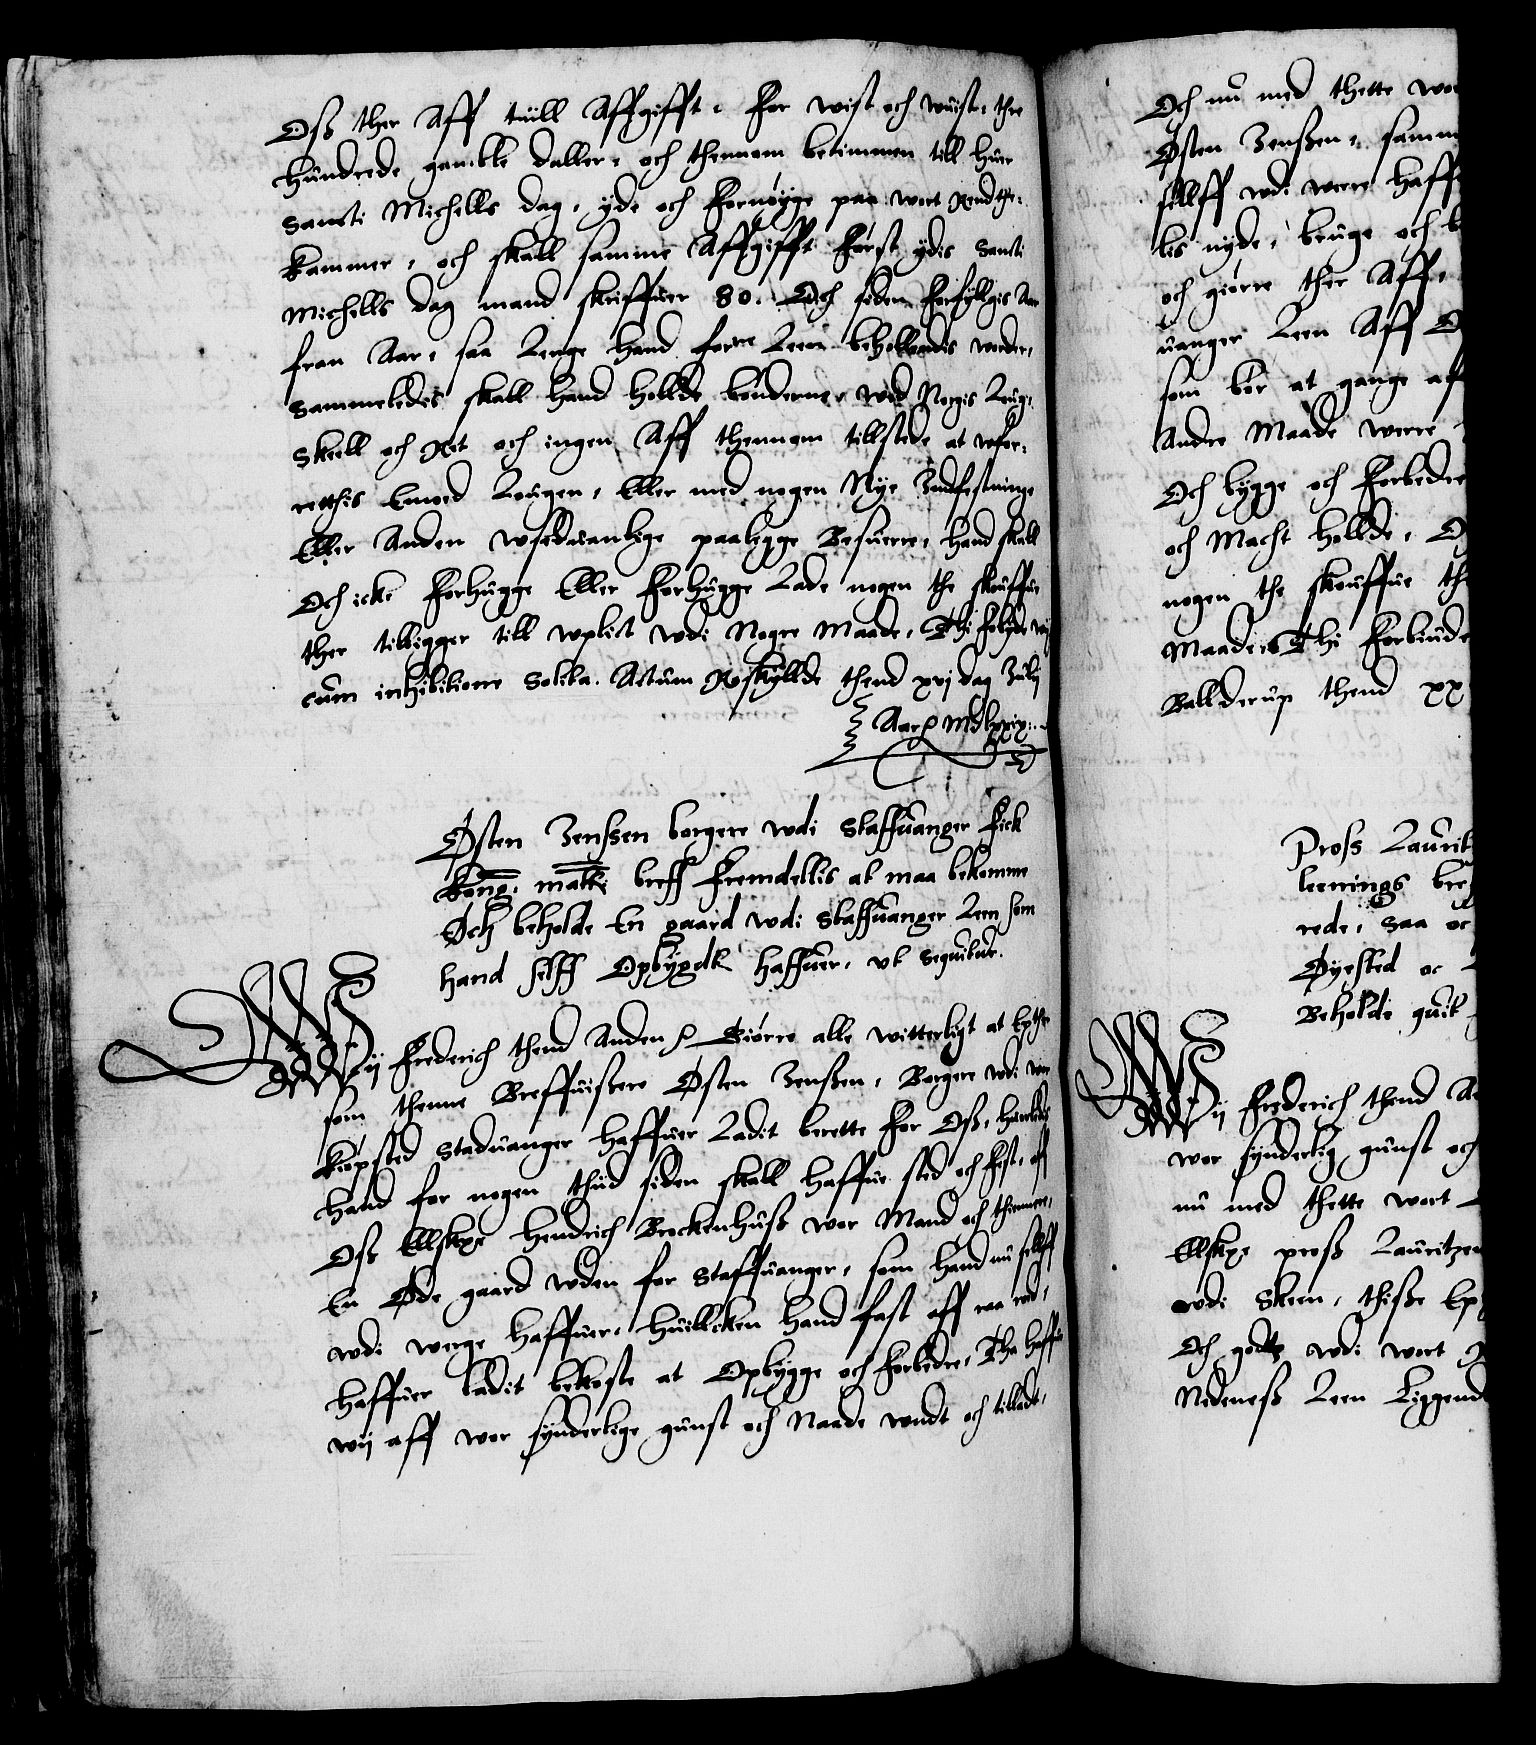 Oss ther Aff tiill Affgifft, for wist och wuist, thre
hundrede gamble daller, och thennom betimmen till huer
Sancti Michells dag, yde och fornøyge paa wort Rendthe-
kammer, och skall samme Affgifft først ydis Sancti
Michells dag mand skriffuer 80. Och siden forfyllgis Aar
fran Aar, saa Lenge hand forne Leen behollendis worder,
Sammeledis skall hand hollde bønderne, wed Norgis Loug,
Skell och Ret och ingen Aff thennom tillstede at wfor-
retthis Emod Lougen, Eller med nogen Nye Indfestninge
Eller Anden wsedwanlige paalegge Besuerre, hand skall
Och icke forhugge Eller forhugge Lade nogen the skouffue
ther tilligger till wplict wdi Nogre Maade, Thi forbyde wij
cum inhibitione Solita. Actum Roskyllde thend xvj dag Julij
Aar &c Mdlxxix.
Østen Jenssen borgere wdi Staffuanger fick
Kong: Matts breff fremdellis at maa bekomme
Och beholde En gaard wdi Staffuanger Leen som
hand selff Opbygdt haffuer, ut sequitur.
Wij Frederich thend Anden &c Giørre alle witterligt at Epther
som thenne Breffuissere Østen Jenssen, Borgere wdi wor
Kiøpsted Staduanger haffuer Ladit berette for Oss, hurledis
hand for nogen thiid siden skall haffue sted och fest, aff
Oss Ellskpe Hendrich Brockenhuss wor Mand och thiennere,
En Øde gaard wden for Staffuanger, som hand nu sellff
wdi werge haffuer, huillcken hand fast aff raa rod,
haffuer ladit bekoste at Opbygge och forbedre, Tha haffue
wij aff wor synderlige gunst och Naade wndt och tilladt,
Och nu med thette wor
Østen Jenssen, samm
sellff wdi were haff
lis nyde, bruge och b
och giørre ther Aff,
uanger Leen Aff O
som bør at gange af
Andre Maade werre
Och bygge och forbedre
och Macht hollde, O
nogen the skouffue th
Maader Thi forbiude
Ballderup thend xx
Pross Lauritz
leenings bre
rede, Saa oc
Øyested oc
Beholde quit
Wij Frederich thend A
wor synderlig gunst och
nu med thette wort
Ellskpe pross Lauritzen
wdi Skeen, thisse Ep
Och godts wdi wort
Nedeness Leen Liggend